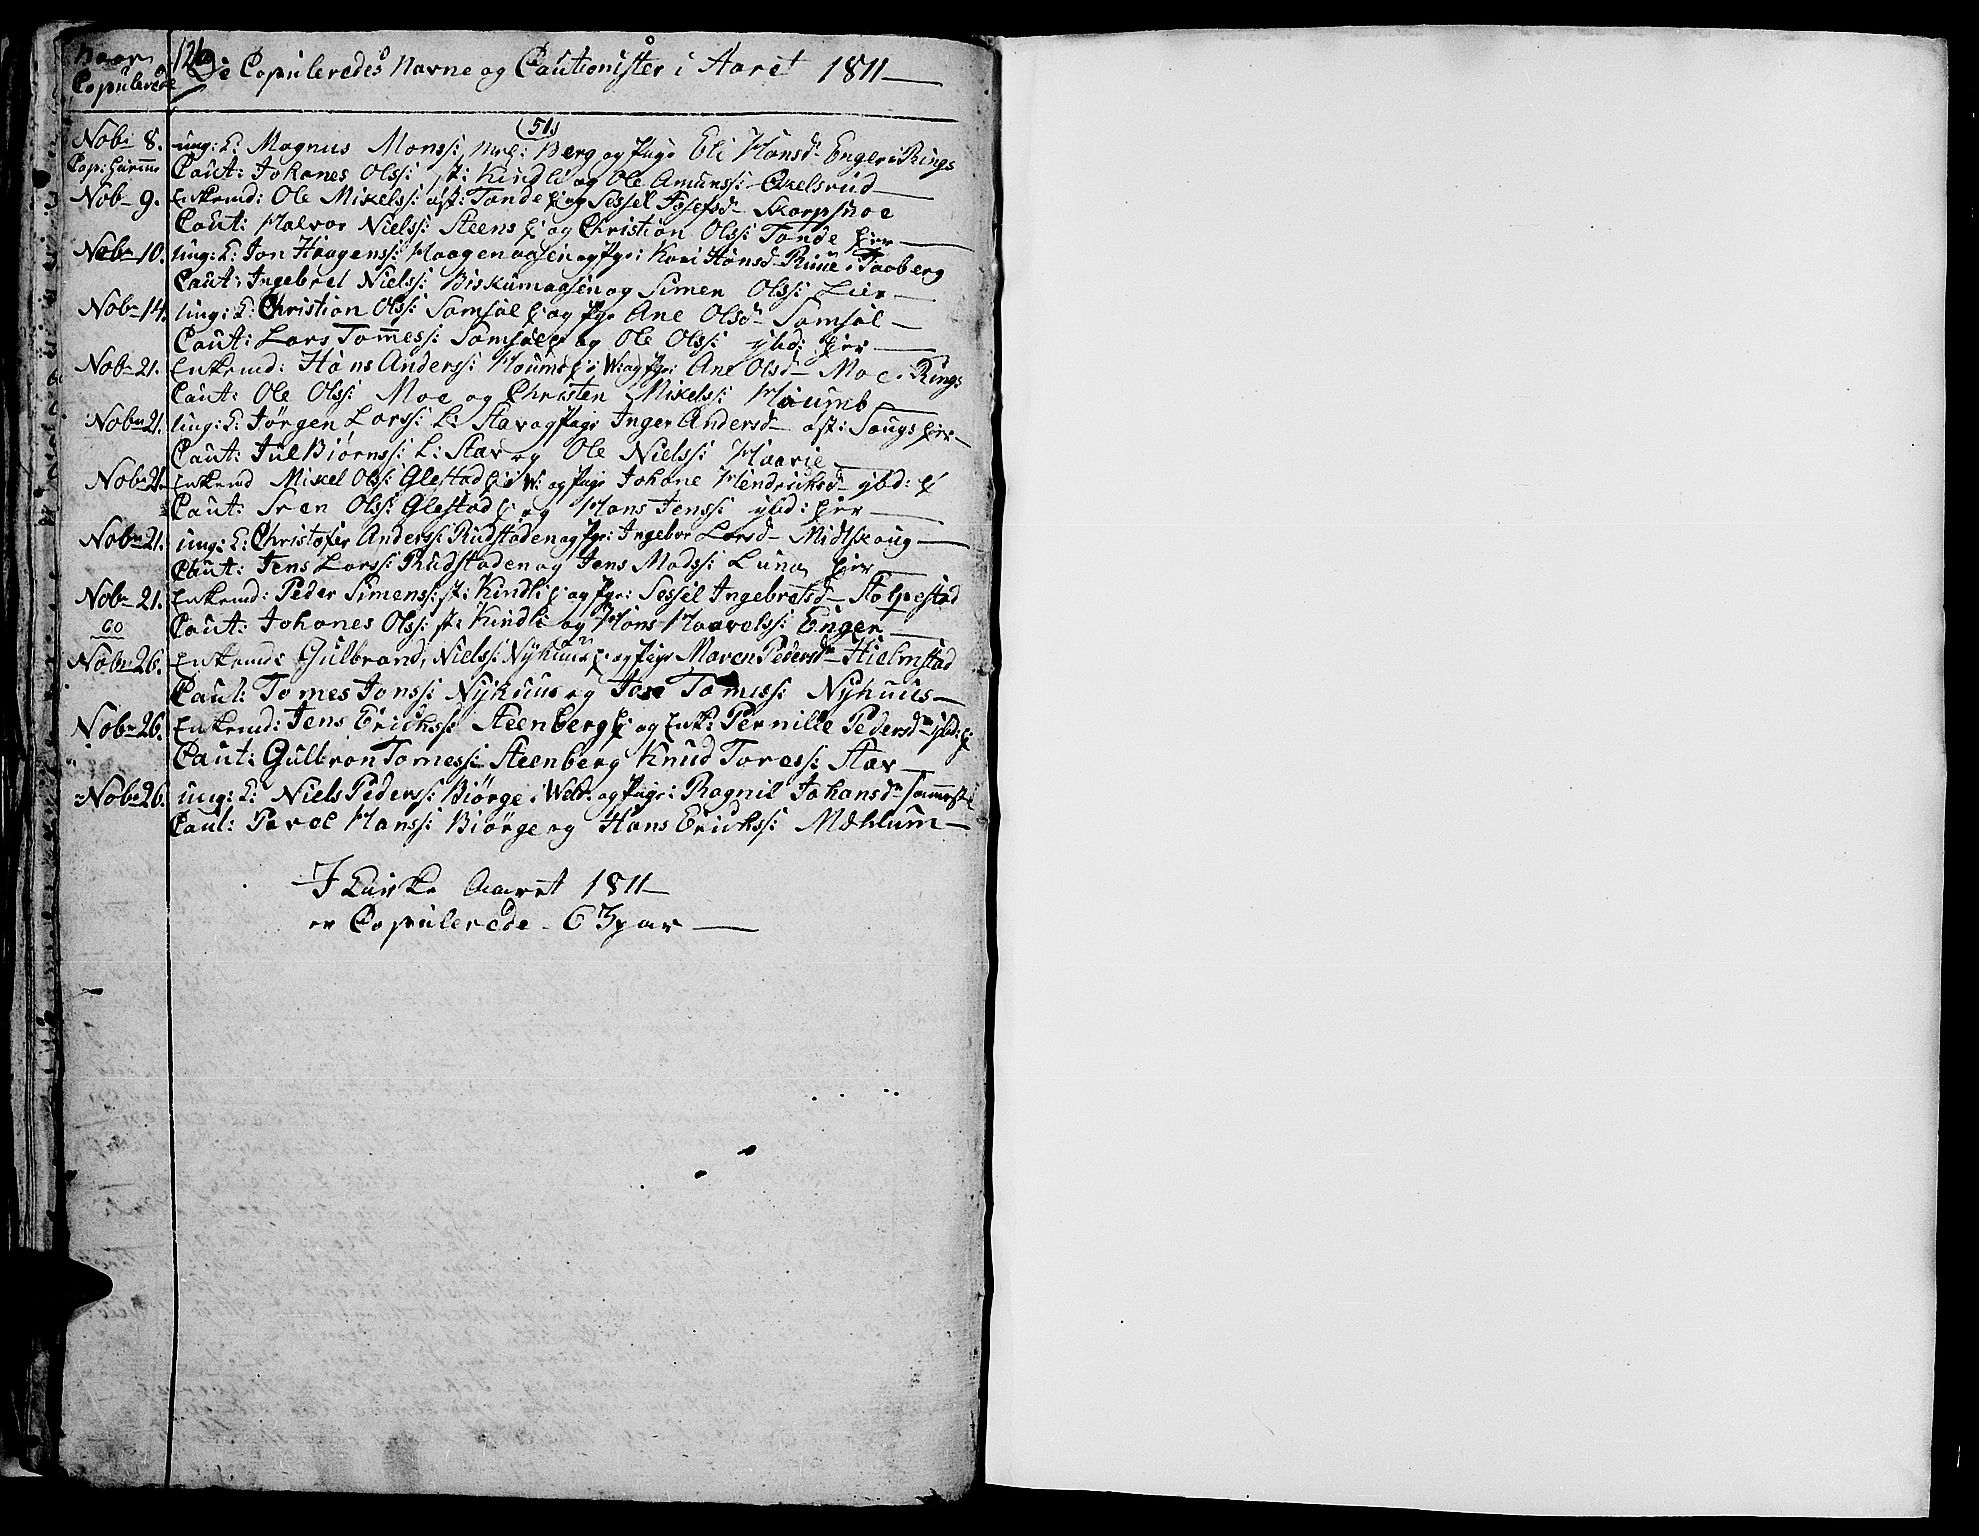 naar
Copulerede
126 De Copuleredes Navne og Cautionister i Aaret 1811 —
(51)
Nobr 8. ung: k: Magnus Monss: Berg og Pige Eli Hansd– Enger i Rings
Caut: Johanes Olss: st: Kindli og Ole Amunss: Axelsrud —
Nobr 9. Enkemd: Ole Mikelss: øst: Tande h: og Sessel Josefsd– Skarpsnoe
Caut: Halvor Nielss: Steens h: og Christian Olss: Tande her —
Nobr 10. ung: k: Jon Haagenss: Haagenaasen og Pge: Kari Hansd– Rüüe i Faaberg
Caut: Ingebret Nielss: Biskumaasen og Simen Olss: Lier —
Nobr 14. ung: k: Christian Olss: Samsal h: og Pge Ane Olsd– Samsal —
Caut: Lars Tomess: Samsal h: og Ole Olss: ibd: her —
Nobr 21. Enkemd: Hans Anderss: Houms h: i W: og Pge: Ane Olsd– Moe i Rings
Caut: Ole Olss: Moe og Christen Mikelss: Houmb —
Nobr 21. ung: k: Jørgen Larss: L: Stav og Pige Inger Andersd– øst: Saugs her —
Caut: Jul Biørnss: L: Stav og Ole Nielss: Haarie —
Nobr 21. Enkemd Mikel Olss: Glestad h: i W: og Pige Johane Hendriksd– ibd: h
Caut: Sven Olss: Glestad h: og Hans Jenss: ibd: her —
Nobr 21. ung: k: Christofer Anderss: Rudstaden og Pge: Ingebor Larsd– Midtskoug —
Caut: Jens Larss: Rudstaden og Jens Madss: Luna her —
Nobr 21. Enkemd: Peder Simenss: st: Kindli h: og Pge: Sessel Ingebretsd– Stolpestad
60
Caut: Johanes Olss: st: Kindli og Hans Haavelss: Enger —
Nobr 26. Enkemd: Gulbrand Nielss: Nyhuus h: og Pige Maren Pedersdr Hielmstad
Caut: Tomes Jonss: Nyhuus og Tomess: Nyhuus —
Nobr 26. Enkemd: Jens Erichss: Steenberg h: og Enke: Pernille Pedersdr ibd: h
Caut: Gulbran Tomess: Steenberg Knud Toress: Stav —
Nobr 26. ung: k: Niels Pederss: Biørge i Weldr: og Pige: Ragnil Johansdr
Caut: Pavel Hanss: Biørge og Hans Erichss: Mæhlum —
I Kirke Aaret 1811 —
er Copulerede – 63 par —